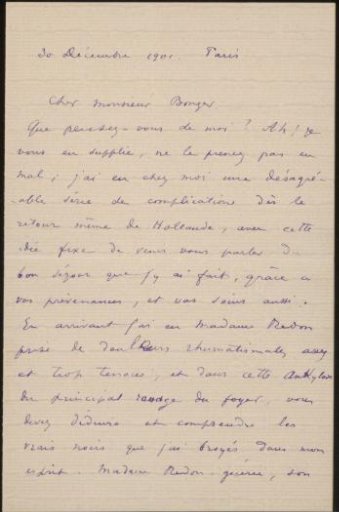 30 Décembre 1901. Paris
Cher monsieur Bonger
Que pensez-vous de moi ? Ah ! je
vous en supplie, ne le prenez pas en
mal ; j'ai eu chez moi une désagré-
-able série de complications dès le
retour même de Hollande, avec cette
idée fixe de venir vous parler du
bon séjour que j'y ai fait, grâce à
vos prévenances, et vos soins aussi.
En arrivant j'ai eu Madame Redon
prise de douleurs rhumatismales assez
et trop tenaces, et dans cette ankylose
du principal rouage du foyer, vous
devez déduire et comprendre les
vrais noirs que j'ai broyés dans mon
esprit. Madame Redon guérie, son